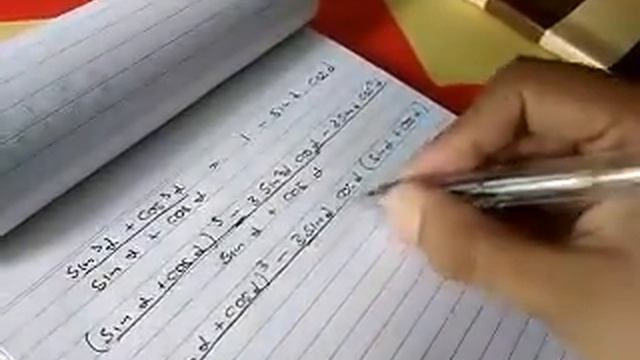 sin³α + cos³α / sin α + cos α = 1 - sin α cos α
(sin α + cos α)³ - 3 sin²α cos α - 3 sin α cos²α / sin α + cos α
α + cos α)³ - 3 sin α cos α (sin α + cos α)